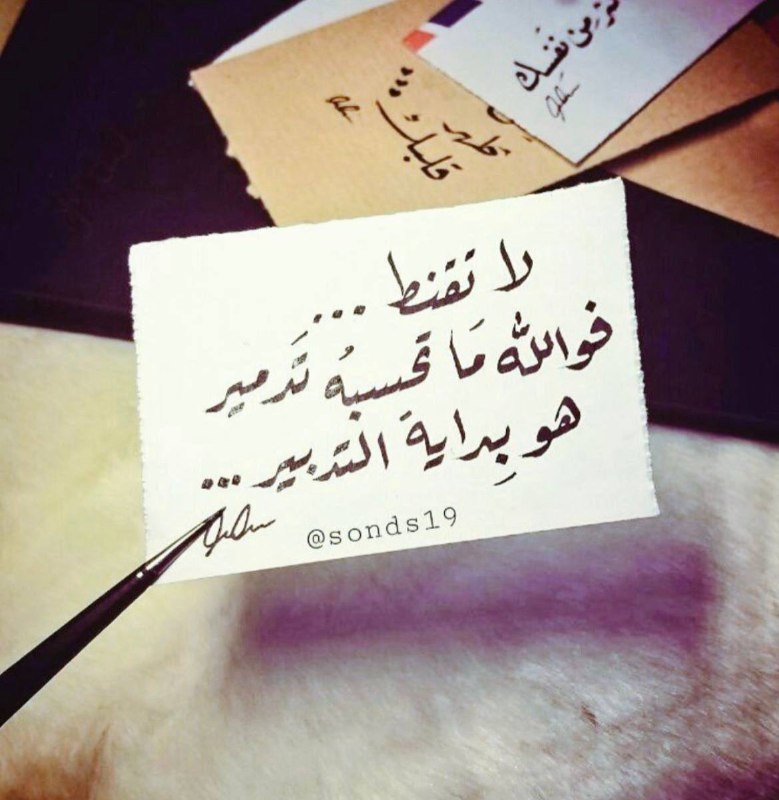 من نفسك
طهر
قلبك
لا تقنط...
فوالله مَا تحسبهُ تَدمير
هو بِداية التدبير...
@sonds19